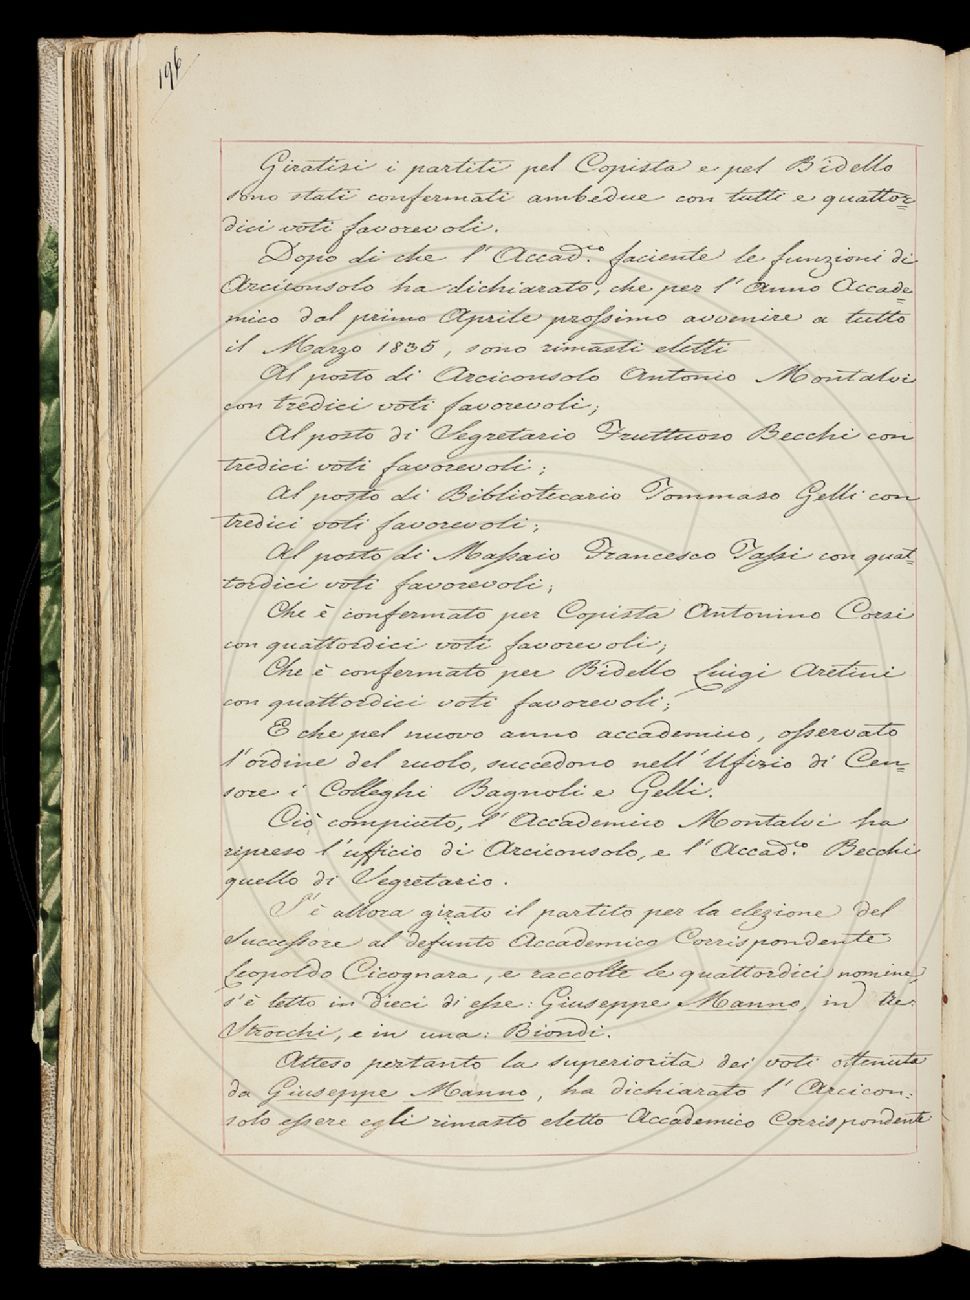 196
Giratisi i partiti pel Copista e pel Bidello
sono stati confermati ambedue con tutti e quattor=
dici voti favorevoli.
Dopo di che l'Accad.co faciente le funzioni di
Arciconsolo ha dichiarato, che per l'Anno Accade=
mico dal primo Aprile prossimo avvenire a tutto
il Marzo 1835, sono rimasti eletti
Al posto di Arciconsolo Antonio Montalvi
con tredici voti favorevoli;
Al posto di Segretario Fruttuoso Becchi con
tredici voti favorevoli;
Al posto di Bibliotecario Tommaso Gelli con
tredici voti favorevoli;
Al posto di Massaio Francesco Tassi con quat=
tordici voti favorevoli;
Che è confermato per Copista Antonino Corsi
con quattordici voti favorevoli;
Che è confermato per Bidello Luigi Aretini
con quattordici voti favorevoli;
E che pel nuovo anno accademico, osservato
l'ordine del ruolo, succedono nell'Ufizio di Cen=
sore i Colleghi Bagnoli e Gelli.
Ciò compiuto, l'Accademico Montalvi ha
ripreso l'ufficio di Arciconsolo, e l'Accad.co Becchi
quello di Segretario.
S'è allora girato il partito per la elezione del
Successore al defunto Accademico Corrispondente
Leopoldo Cicognara, e raccolte le quattordici nomine,
s'è letto in dieci di esse: Giuseppe Manno, in tre:
Strocchi, e in una: Biondi.
Atteso pertanto la superiorità dei voti ottenuta
da Giuseppe Manno, ha dichiarato l'Arcicon:
solo essere egli rimasto eletto Accademico Corrispondente